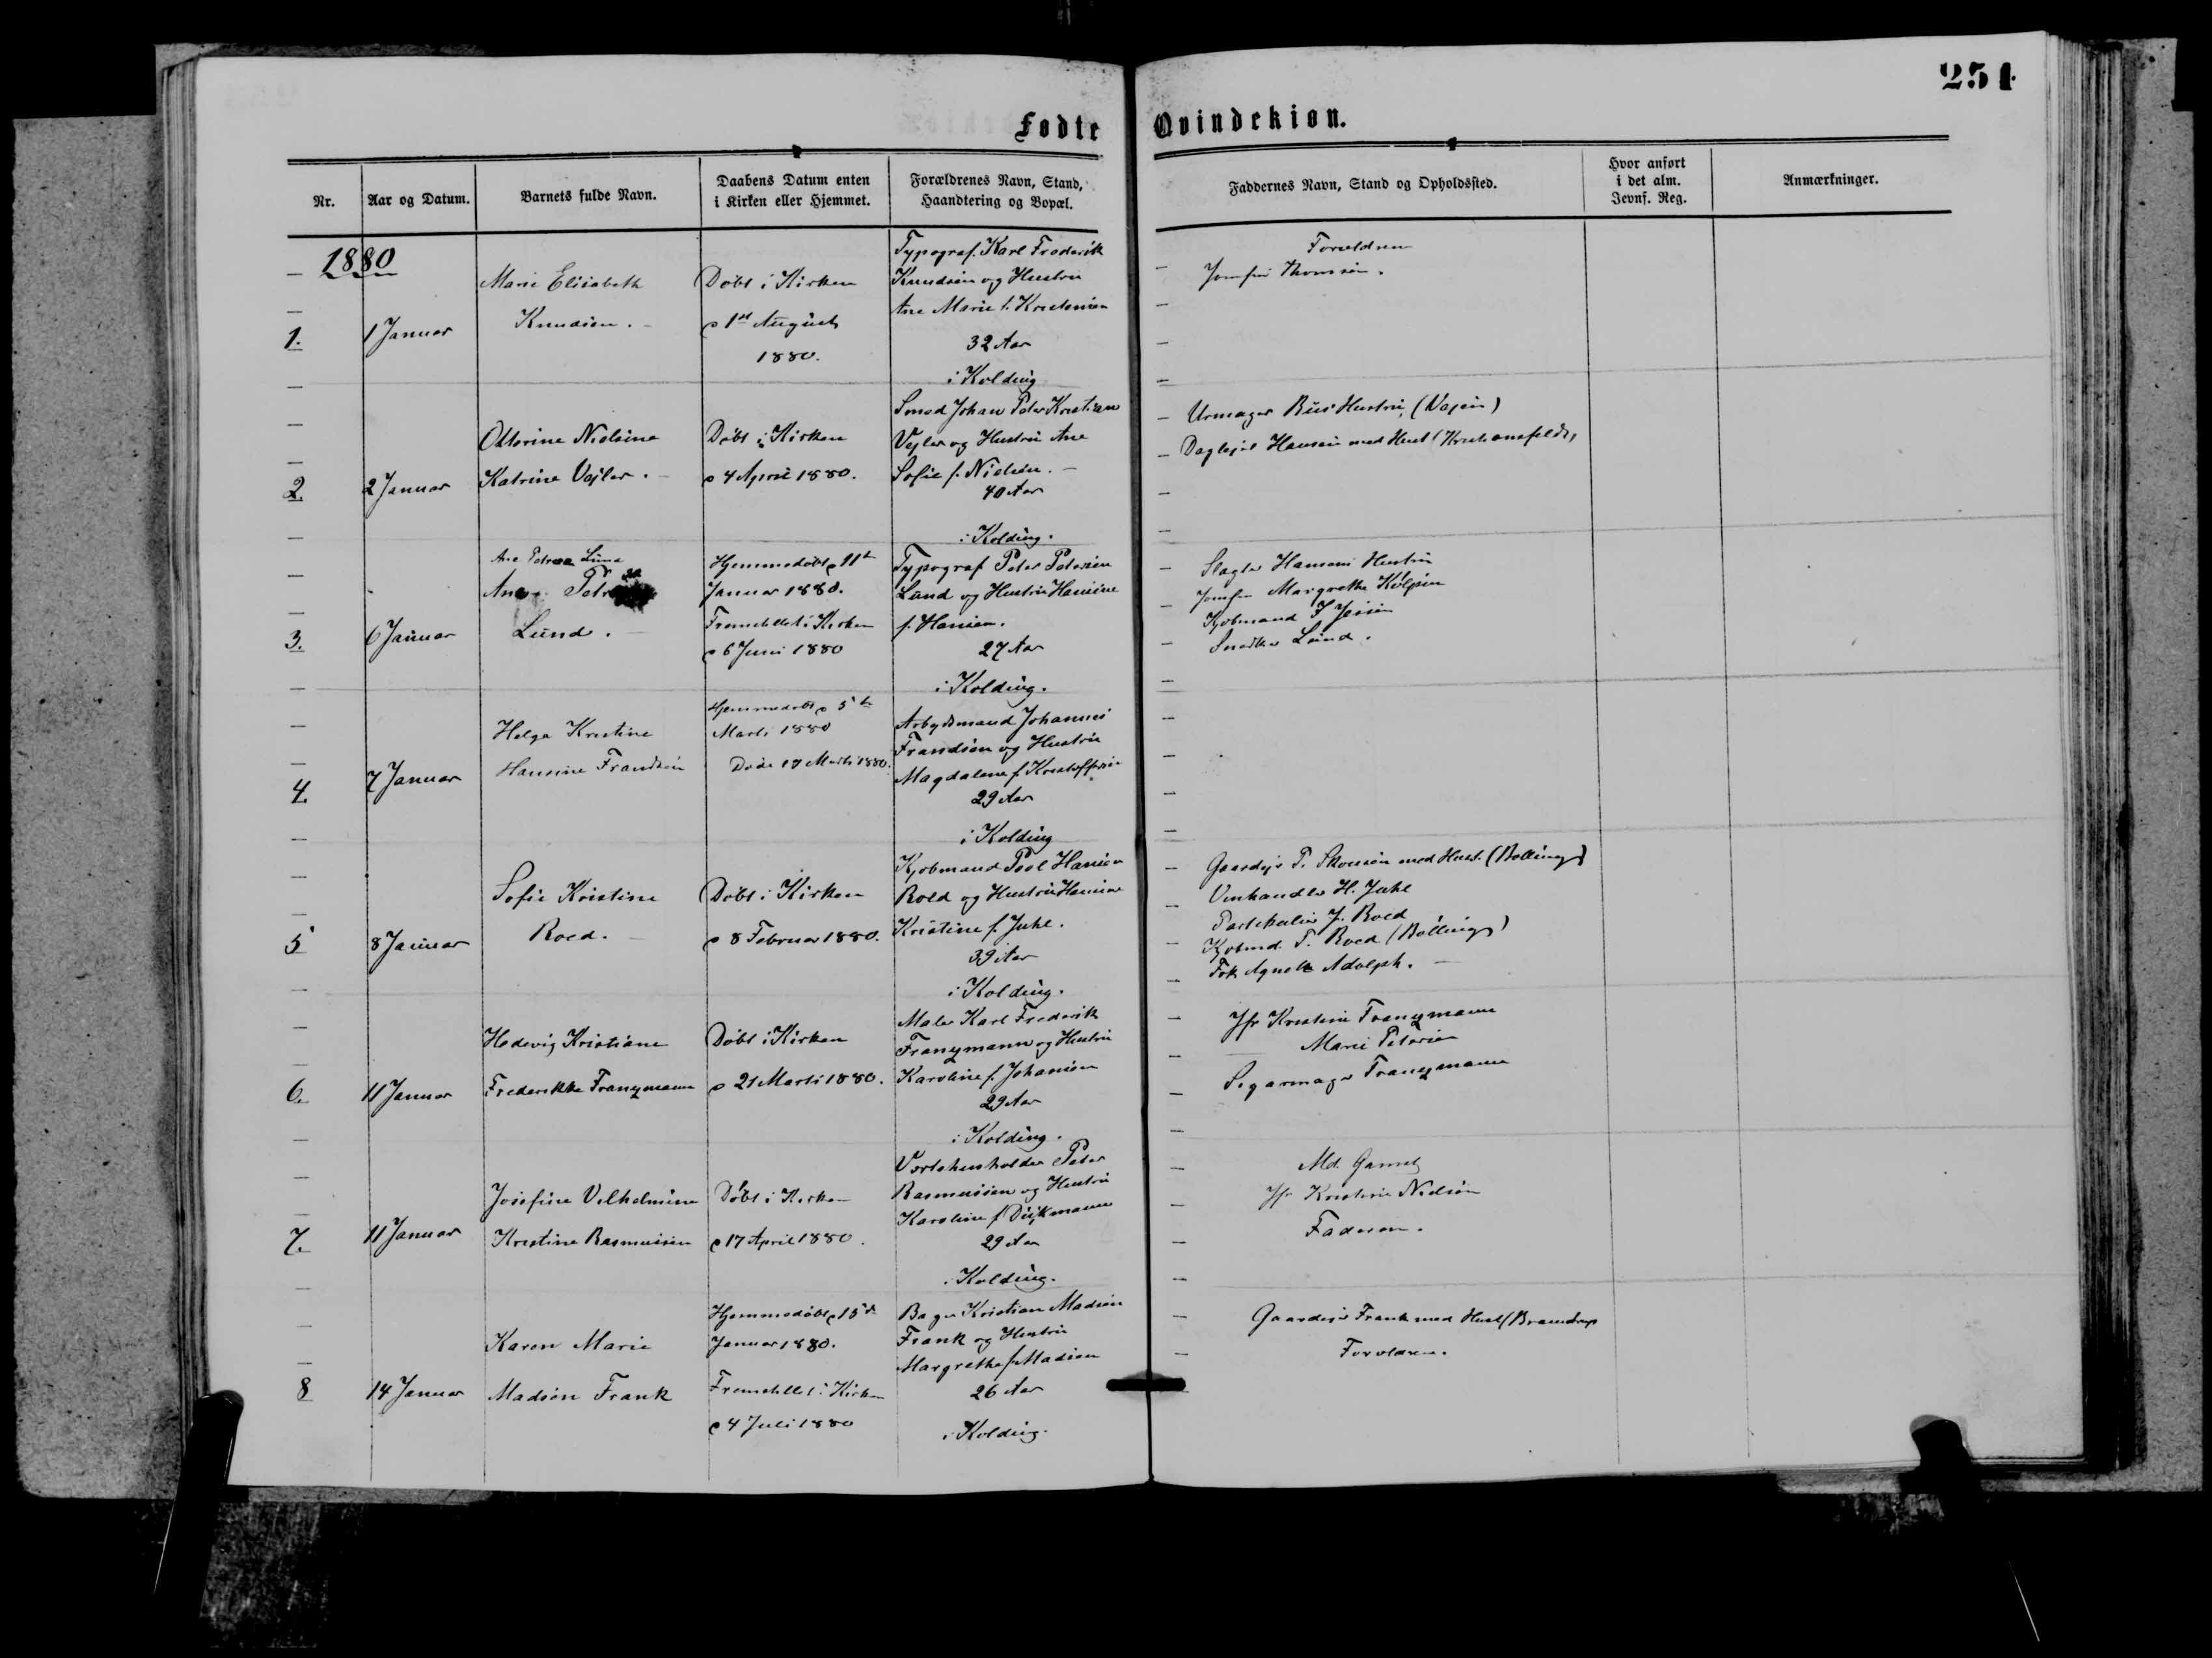 254
Fødte Qvindekiøn.
Nr.
Aar og Datum.
Barnets fulde Navn.
Daabens Datum enten
i Kirken eller Hjemmet.
Forældrenes Navn, Stand,
Haandtering og Bopæl.
Faddernes Navn, Stand og Opholdssted.
Hvor anført
i det alm.
Jevnf. Reg.
Anmærkninger.
1880
1.
1 Januar
Marie Elisabeth
Knudsen.
Døbt i Kirken
d 1st August
1880.
Typograf. Karl Frederik
Knudsen og Hustru
Ane Marie f. Kristensen
32 Aar
i Kolding
Forældrene
Jomfru Thomsen.
2.
2 Januar
Ottorine Nielsine
Katrine Vejler.
Døbt i Kirken
d 4 April 1880.
Smed Johan Peter Kristian
Vejler og Hustru Ane
Sofie f. Nielsen.
40 Aar
i Kolding.
Urmager Bùs Hustru, (Vejen)
Daglejer Hansen med Hust (Kristiansfeldt)
3.
6 Januar
Ane Petrea Lund
Ane Petrea
Lund.
Hjemmedøbt d 11te
Januar 1880.
Fremstillet i Kirken
d 6 Juni 1880
Typograf Peter Petersen
Lund og Hustru Hansine
f. Hansen.
27 Aar
i Kolding.
Slagter Hansens Hustru
Jomfru Margrethe Kølpin
Kjøbmand J Jessen
Snedker Lund.
4.
7 Januar
Helga Kristine
Hansine Frandsen
Hjemmedøbt d 5te
Marts 1880
Døde 17 Marts 1880.
Arbejdsmand Johannes
Frandsen og Hustru
Magdalene f. Kristoffersen
29 Aar
i Kolding
5
8 Januar
Sofie Kristine
Roed.
Døbt i Kirken
d 8 Februar 1880.
Kjøbmand Povl Hansen
Roed og Hustru Hansine
Kristine f. Juhl.
39 Aar
i Kolding.
Gaardejer P. Thomsen med Hust. (Bølling)
Vinhandler H. Juhl
Partikulier J. Roed
Kjøbmd. T. Roed (Bølling)
Frk Agnete Adolph.
6.
11 Januar
Hedevig Kristiane
Frederikke Franzmann
Døbt i Kirken
d 21 Marts 1880.
Maler Karl Frederik
Franzmann og Hustru
Karoline f. Johansen
29 Aar
i Kolding.
Jfr Kristine Franzmann
Marie Petersen
Sigarmager Franzmann
7.
11 Januar
Josefine Vilhelmine
Kristine Rasmussen
Døbt i Kirken
d 17 April 1880.
Værtshusholder Peter
Rasmussen og Hustru
Karoline f. Dijkmann
29 Aar
i Kolding.
Md. Gamst
Jfr Kristine Nielsen
Faderen.
8
14 Januar
Karen Marie
Madsen Frank
Hjemmedøbt d 15de
Januar 1880.
Fremstillet i Kirken
d 4 Juli 1880
Bager Kristian Madsen
Frank og Hustru
Margrethe f. Madsen
26 Aar
i Kolding.
Gaardejer Frank med Hust (Bramdrup
Forældrene.